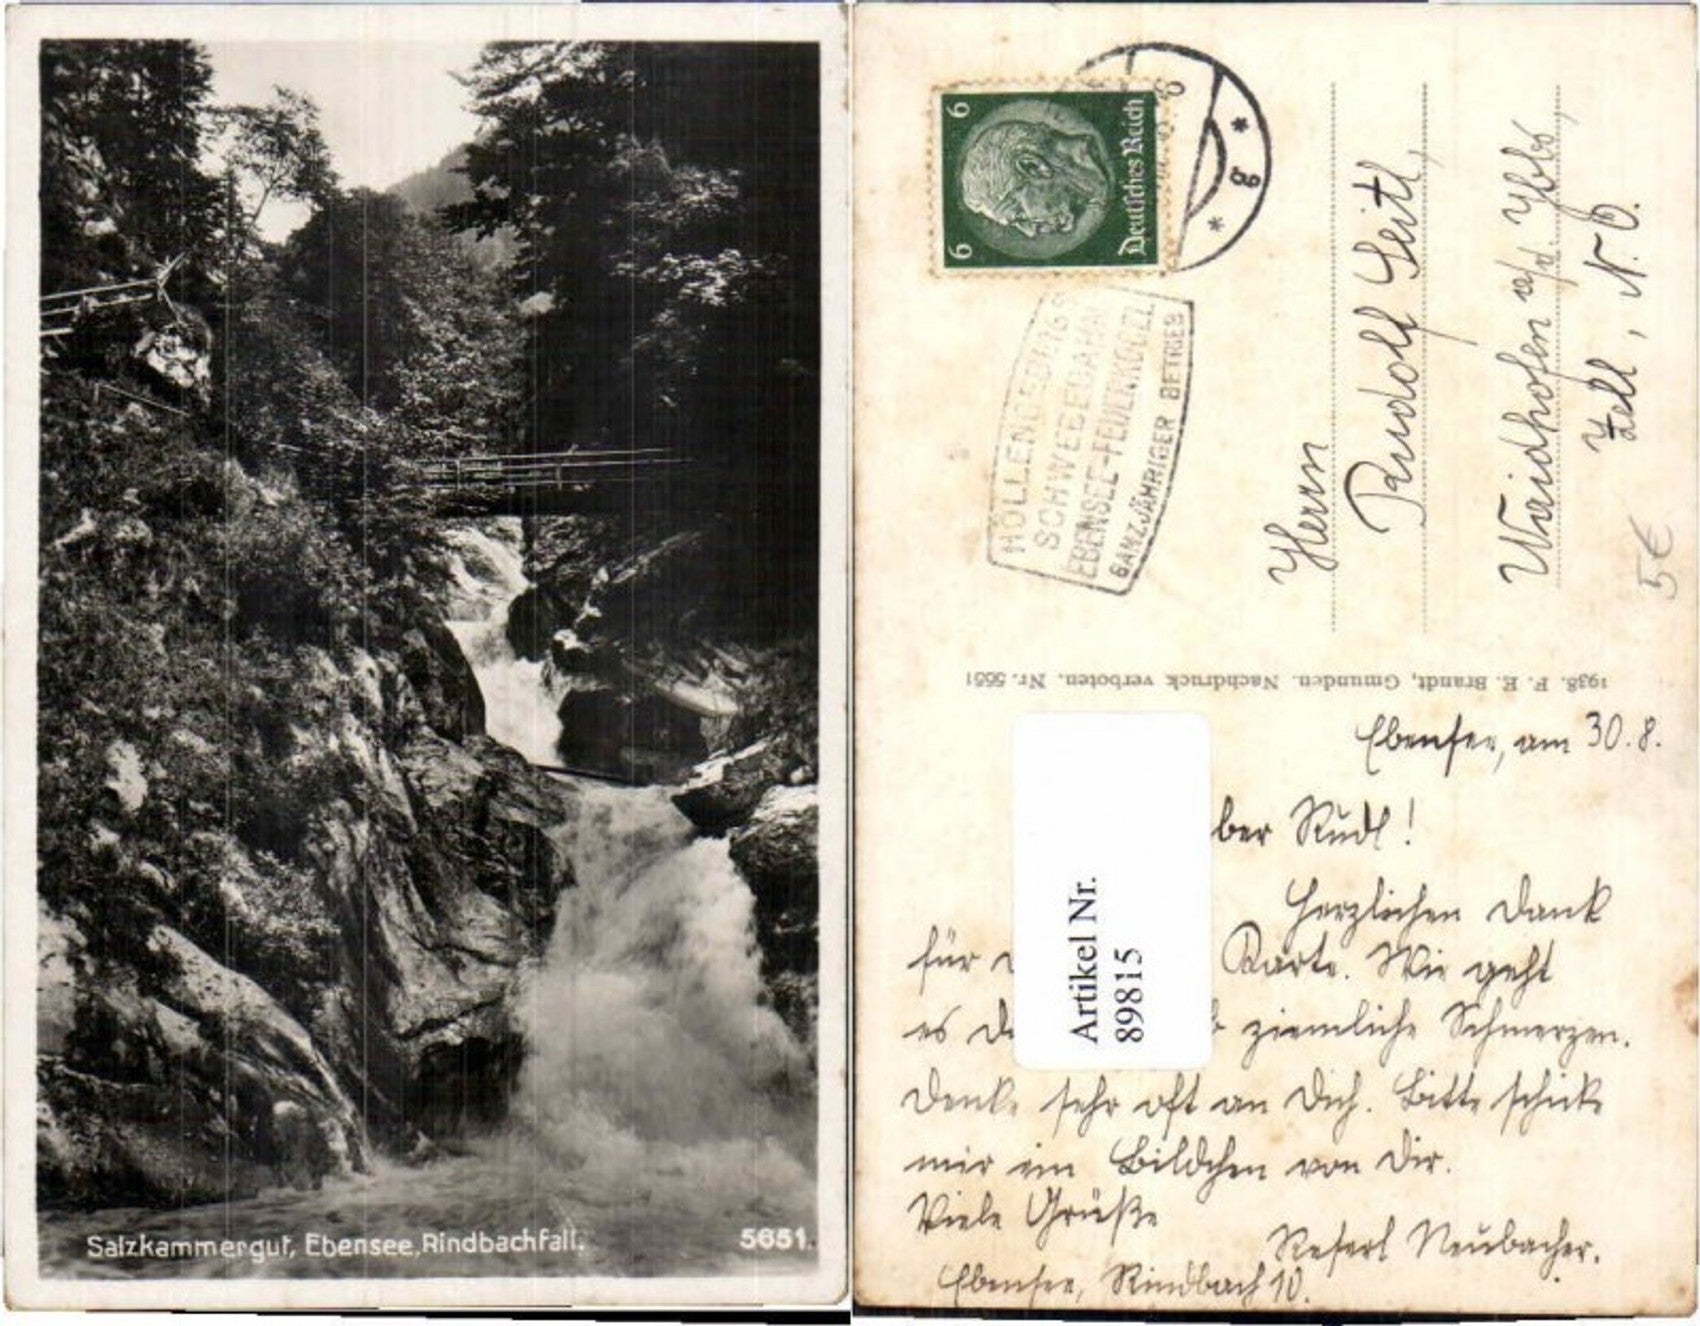 Salzkammergut, Ebensee, Rindbachfall.
5651.
6
6
Deutsches Reich
* g *
HÖLLENGEBIRGS
SCHWEBEBAHN
EBENSEE-FEUERKOGEL
GANZJÄHRIGER BETRIEB
Herrn
Rudolf Seitl,
Waidhofen a/d. Ybbs,
Zell, N.Ö.
5€
1938. F. E. Brandt, Gmunden. Nachdruck verboten. Nr. 5651
Ebensee, am 30.8.
ber Rudl!
Herzlichen Dank
für Karte. Mir geht
es ziemliche Schmerzen.
Denke sehr oft an Dich. Bitte schicke
mir ein Bildchen von Dir.
Viele Grüße
Reserl Neubacher.
Ebensee, Rindbach 10.
Artikel Nr.
89815